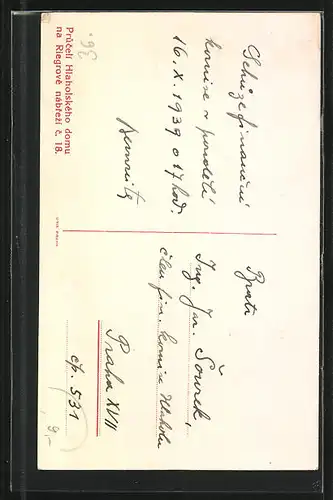 Průčelí Hlaholského domu
na Riegrově nábřeží č. 18.
36.
Schůze finanční
komise v pondělí
16. X. 1939 o 17 hod.
Bratr
Ing. Jar. Šourek,
člen fin. komise Hlaholu
Praha XVII
čp. 531
9,-